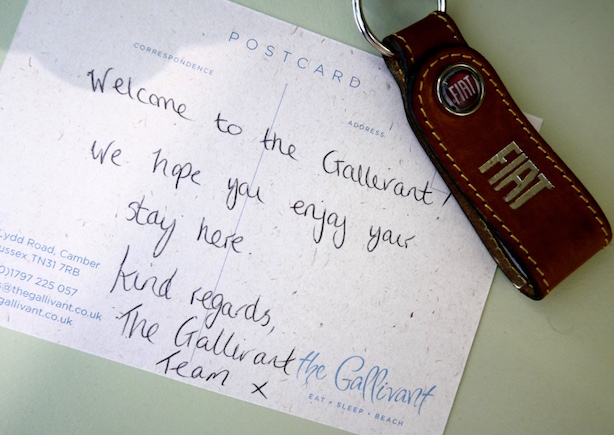 POSTCARD
CORRESPONDENCE
ADDRESS
Welcome to the Gallivant!
We hope you enjoy your
stay here.
Kind regards,
The Gallivant
Team x
Lydd Road, Camber
ussex TN31 7RB
0)1797 225 057
s@thegallivant.co.uk
gallivant.co.uk
the Gallivant
EAT • SLEEP • BEACH
FIAT
FIAT